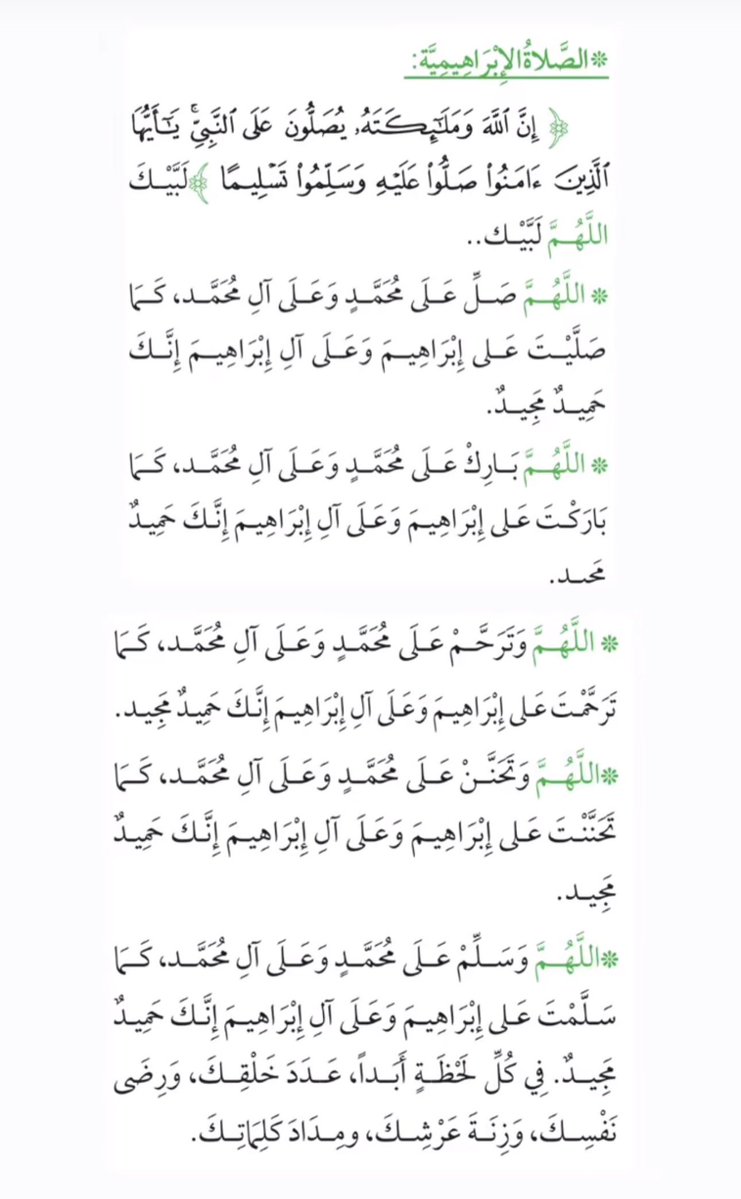 * الصَّلاةُ الإِبْرَاهِيمِيَّة:
﴿ إِنَّ ٱللَّهَ وَمَلَـٰٓئِكَتَهُۥ يُصَلُّونَ عَلَى ٱلنَّبِيِّۚ يَـٰٓأَيُّهَا
ٱلَّذِينَ ءَامَنُوا۟ صَلُّوا۟ عَلَيْهِ وَسَلِّمُوا۟ تَسْلِيمًا ﴾ لَبَّيْـكَ
اللَّهُـمَّ لَبَّيْـك..
* اللَّهُـمَّ صَـلِّ عَـلَى مُحَمَّـدٍ وَعَـلَى آلِ مُحَمَّـد، كَـمَا
صَلَّيْـتَ عَـلى إِبْرَاهِيـمَ وَعَـلَى آلِ إِبْرَاهِيـمَ إِنَّـكَ
حَمِيـدٌ مَجِيـدٌ.
* اللَّهُـمَّ بَـارِكْ عَـلَى مُحَمَّـدٍ وَعَـلَى آلِ مُحَمَّـد، كَـمَا
بَارَكْـتَ عَـلى إِبْرَاهِيمَ وَعَـلَى آلِ إِبْرَاهِيـمَ إِنَّـكَ حَمِيـدٌ
* اللَّهُـمَّ وَتَرَحَّـمْ عَـلَى مُحَمَّـدٍ وَعَـلَى آلِ مُحَمَّـد، كَـمَا
تَرَحَّمْتَ عَـلى إِبْرَاهِيمَ وَعَـلَى آلِ إِبْرَاهِيمَ إِنَّـكَ حَمِيدٌ مَجِيد.
*اللَّهُـمَّ وَتَحَنَّـنْ عَـلَى مُحَمَّـدٍ وَعَـلَى آلِ مُحَمَّـد، كَـمَا
تَحَنَّنْـتَ عَـلى إِبْرَاهِيمَ وَعَـلَى آلِ إِبْرَاهِيـمَ إِنَّـكَ حَمِيـدٌ
مَجِيـد.
*اللَّهُـمَّ وَسَـلِّمْ عَـلَى مُحَمَّـدٍ وَعَـلَى آلِ مُحَمَّـد، كَـمَا
سَـلَّمْتَ عَـلى إِبْرَاهِيمَ وَعَـلَى آلِ إِبْرَاهِيمَ إِنَّـكَ حَمِيـدٌ
مَجِيـدٌ. فِي كُلِّ لَحْظَـةٍ أَبَـداً، عَـدَدَ خَلْقِـكَ، وَرِضَـى
نَفْسِـكَ، وَزِنَـةَ عَرْشِـكَ، ومِـدَادَ كَلِمَاتِـكَ.